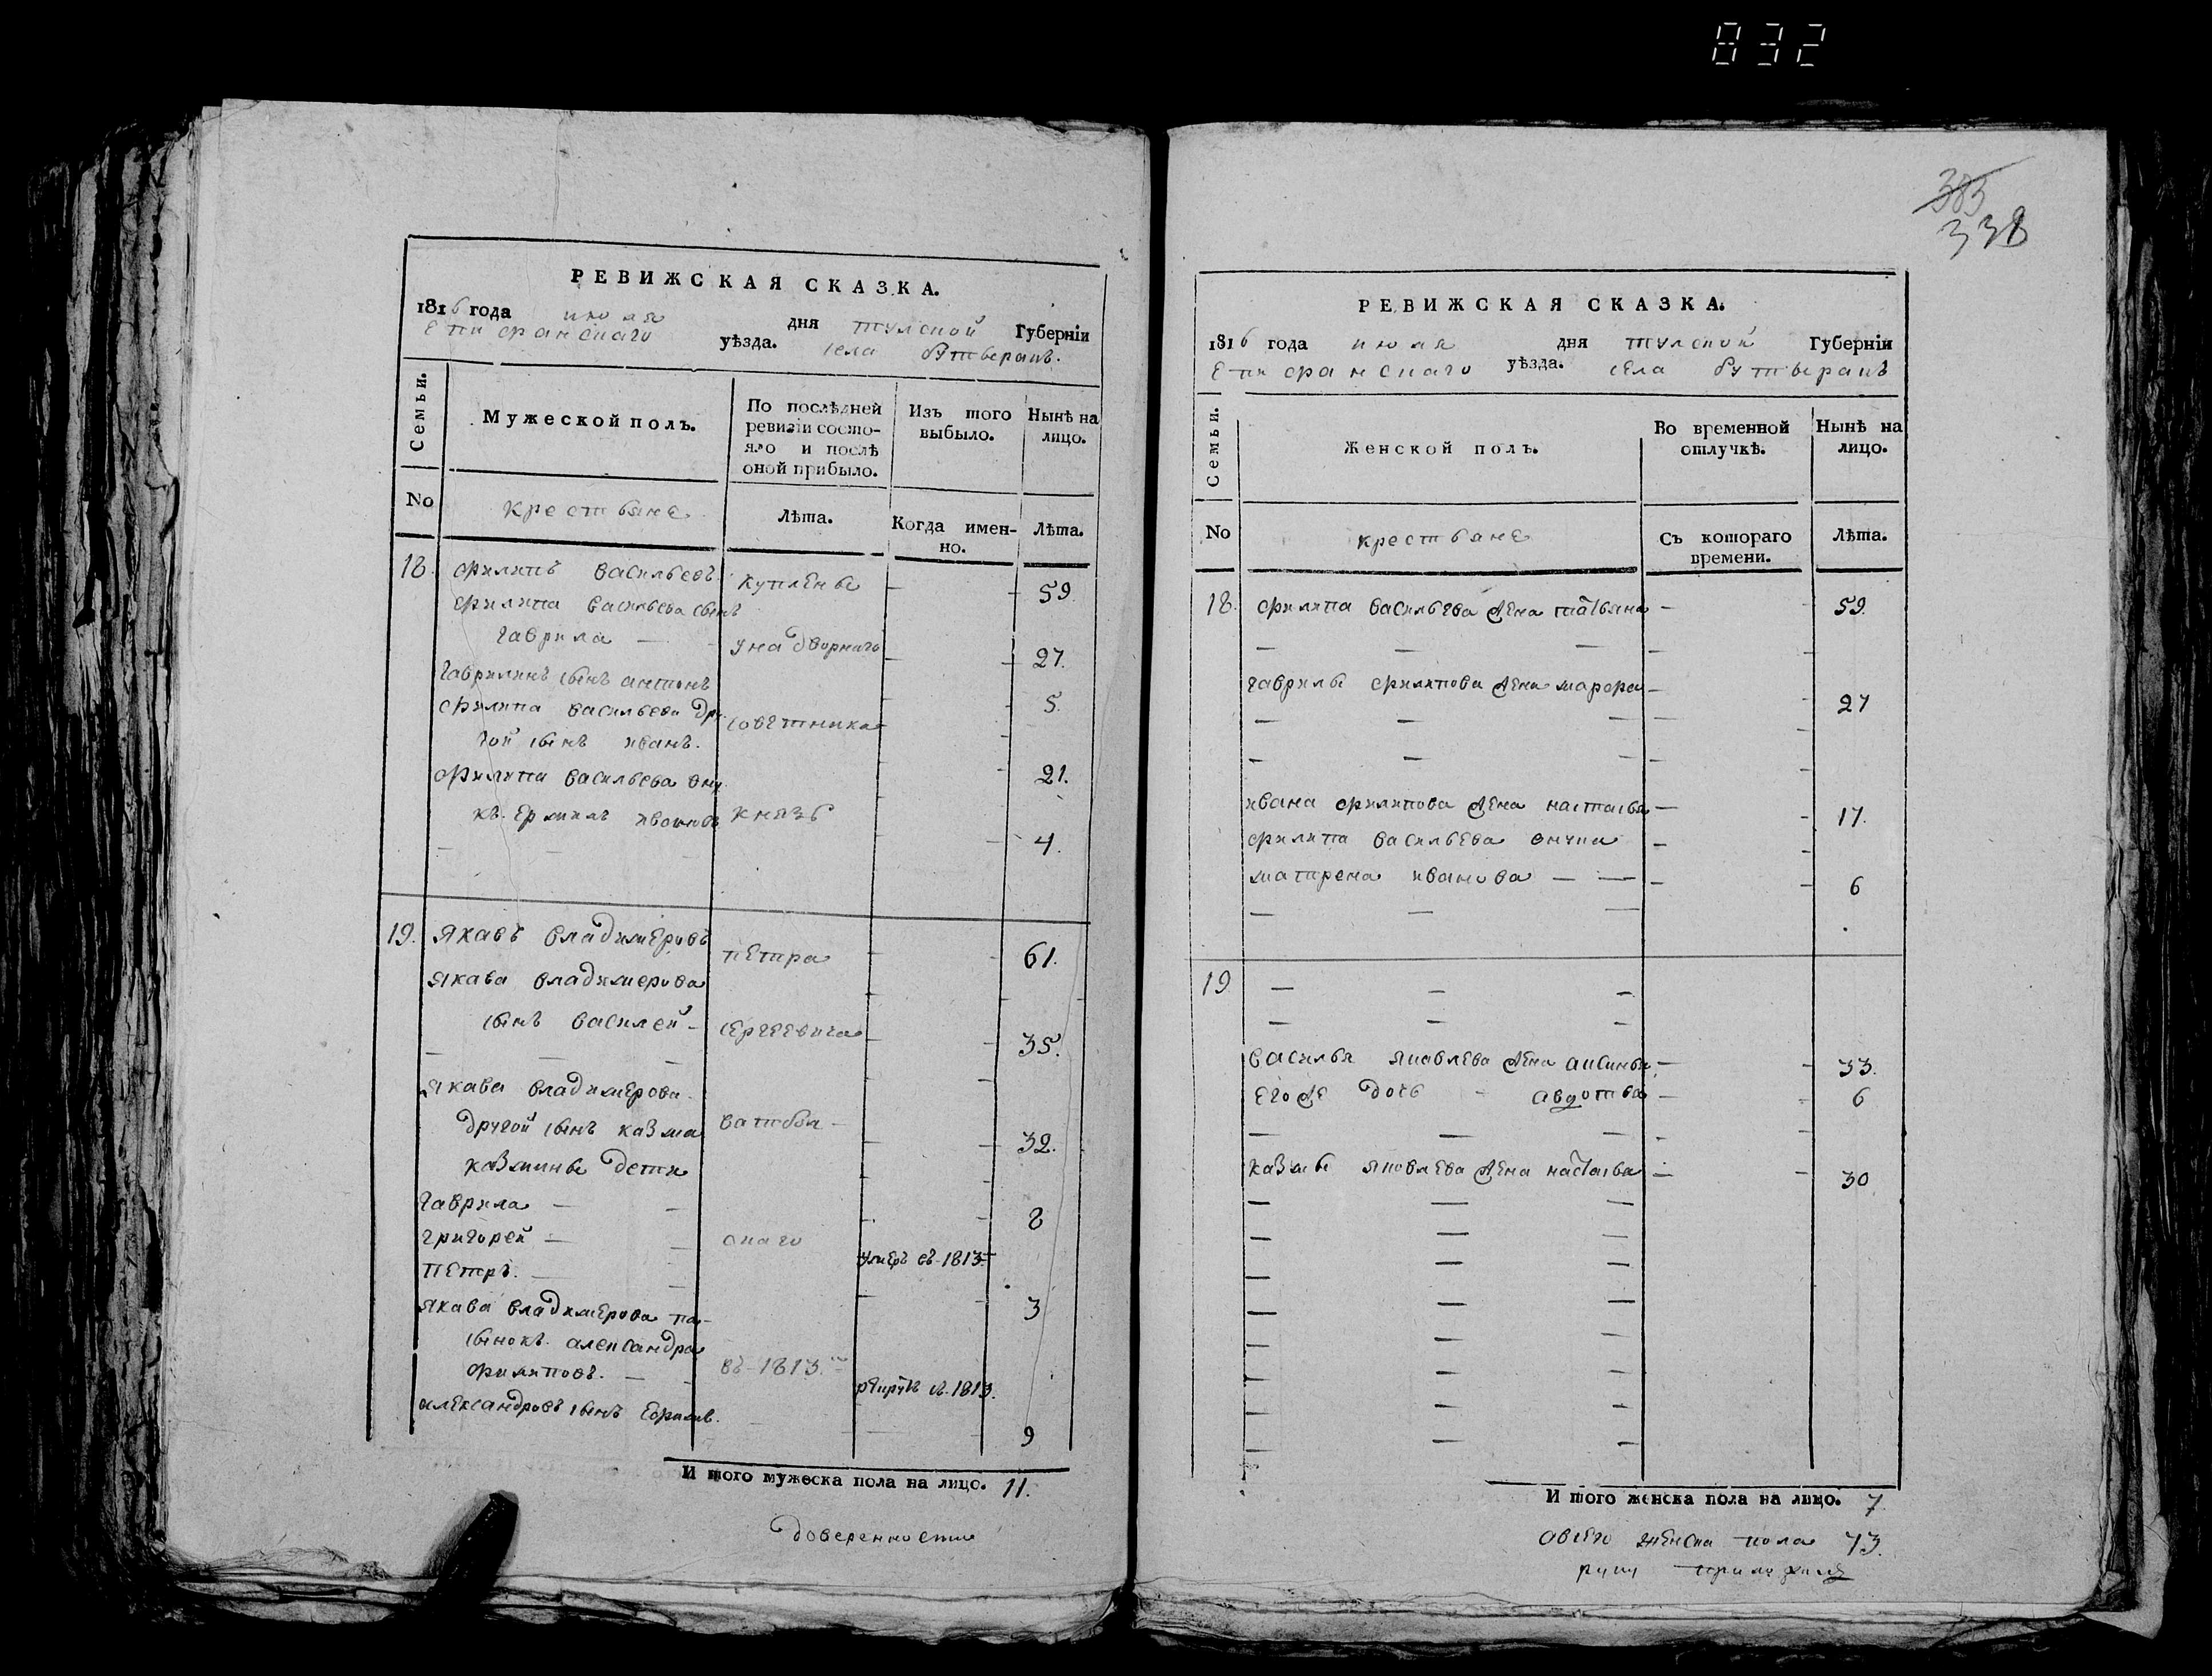 832
383
338
РЕВИЖСКАЯ СКАЗКА.
1816 года июля дня тулской Губерніи
Епифанскаго уѣзда. села бутыракъ.
Семьи.
Мужеской полъ.
По послѣдней ревизіи состояло и послѣ оной прибыло.
Изъ того выбыло.
Нынѣ на лицо.
No
крестьяне
Лѣта.
Когда именно.
Лѣта.
18. филипъ васильевъ куплены — 59
филипа васильева сынъ
гаврила — у надворнаго — 27.
гаврилинъ сынъ антонъ — 5.
филипа васильева дру
гой сынъ иванъ. советника — 21.
филипа васильева вну
къ ермилъ ивановъ князь — 4.
19. якавъ владимеровъ петра — 61.
якава владимерова
сынъ василей — сергеевича — 35.
якава владимерова
другой сынъ казма — 32.
казмины дети
гаврила — 8
григорей — онаго умеръ въ 1813
петръ. — 3
якава владимерова па-
сынокъ александра
филиповъ. — въ 1813 рекрутъ въ 1813.
александровъ сынъ — 9
И того мужеска пола на лицо. 11.
доверенности
РЕВИЖСКАЯ СКАЗКА.
1816 года июля дня тулской Губерніи
Епифанскаго уѣзда. села бутыракъ
Семьи.
Женской полъ.
Во временной отлучкѣ.
Нынѣ на лицо.
No
крестьяне
Съ котораго времени.
Лѣта.
18. филипа васильева жена татьяна — 59.
гаврилы филипова жена марфа — 27
ивана филипова жена настасья — 17.
филипа васильева внучка
матрена иванова — 6
19
василья яковлева жена аксинья — 33.
егоже дочь авдотья — 6
казмы яковлева жена настасья — 30
И того женска пола на лицо. 7.
авсего женска пола 73.
руку приложилъ